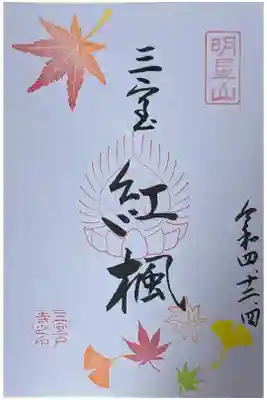 明星山
三室
紅楓
令和四・十二・四
三室戸
寺之印